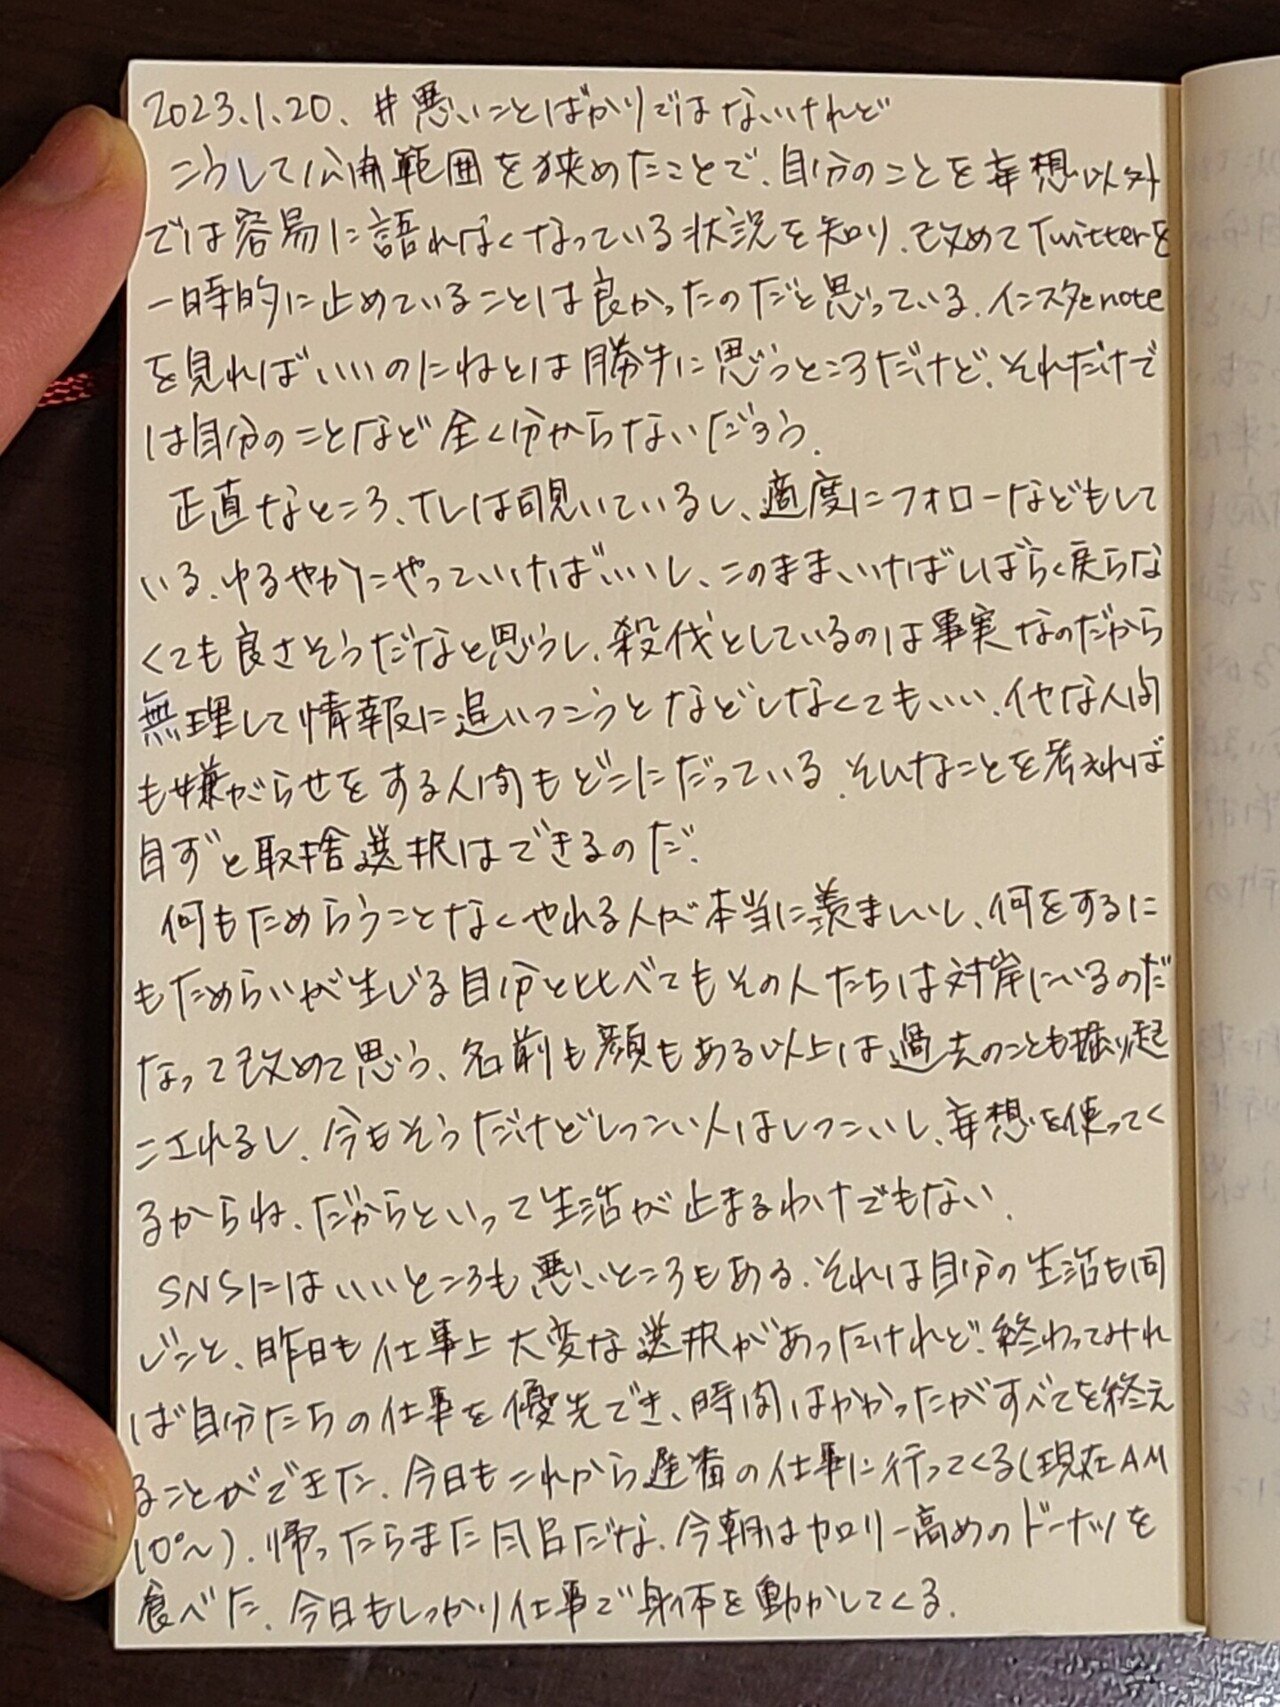 2023.1.20. #悪いことばかりではないけれど
こうして公開範囲を狭めたことで、自分のことを妄想以外
では容易に語れなくなっている状況を知り、改めてTwitterを
一時的に止めていることは良かったのだと思っている。インスタとnote
を見ればいいのにねとは勝手に思うところだけど、それだけで
は自分のことなど全く分からないだろう。
正直なところ、TLは覗いているし、適度にフォローなどもして
いる。ゆるやかにやっていければいいし、このままいけばしばらく戻らな
くても良さそうだなと思うし、殺伐としているのは事実なのだから
無理して情報に追いつこうとなどしなくてもいい。イヤな人間
も嫌がらせをする人間もどこにだっている。そんなことを考えれば
自ずと取捨選択はできるのだ。
何もためらうことなくやれる人が本当に羨ましいし、何をするに
もためらいが生じる自分と比べてもその人たちは対岸にいるのだ
なって改めて思う。名前も顔もある以上は過去のことも掘り起
こされるし、今もそうだけどしつこい人はしつこいし、妄想を使ってく
るからね。だからといって生活が止まるわけでもない。
SNSにはいいところも悪いところもある。それは自分の生活も同
じこと、昨日も仕事上大変な選択があったけれど、終わってみれ
ば自分たちの仕事を優先でき、時間はかかったがすべてを終え
ることができた。今日もこれから遅番の仕事に行ってくる(現在AM
10°〜)。帰ったらまた風呂だな。今朝はカロリー高めのドーナツを
食べた。今日もしっかり仕事で身体を動かしてくる。